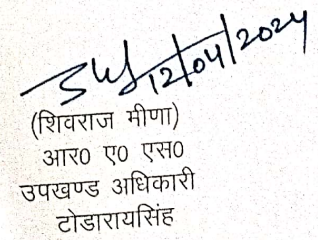 12/04/2024
(शिवराज मीणा)
आर0 ए0 एस0
उपखण्ड अधिकारी
टोडारायसिंह